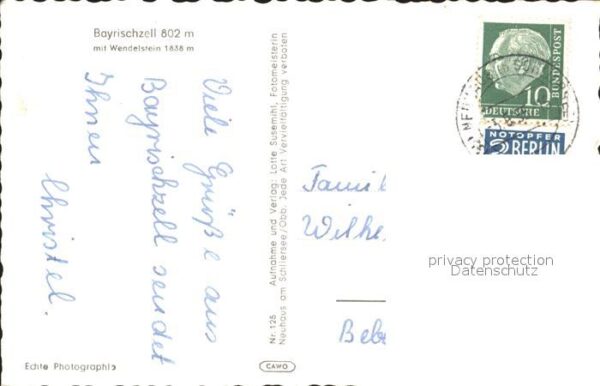 Bayrischzell 802 m
mit Wendelstein 1838 m
Viele Grüße aus
Bayrischzell sendet
Ihnen
Christel.
Nr. 125 Aufnahme und Verlag: Lotte Susemihl, Fotomeisterin
Neuhaus am Schliersee/Obb. Jede Art Vervielfältigung verboten
10
DEUTSCHE
BUNDESPOST
NOTOPFER
2 BERLIN
Famil
Wilhe
privacy protection
Datenschutz
Bebr
Echte Photographie
CAWO